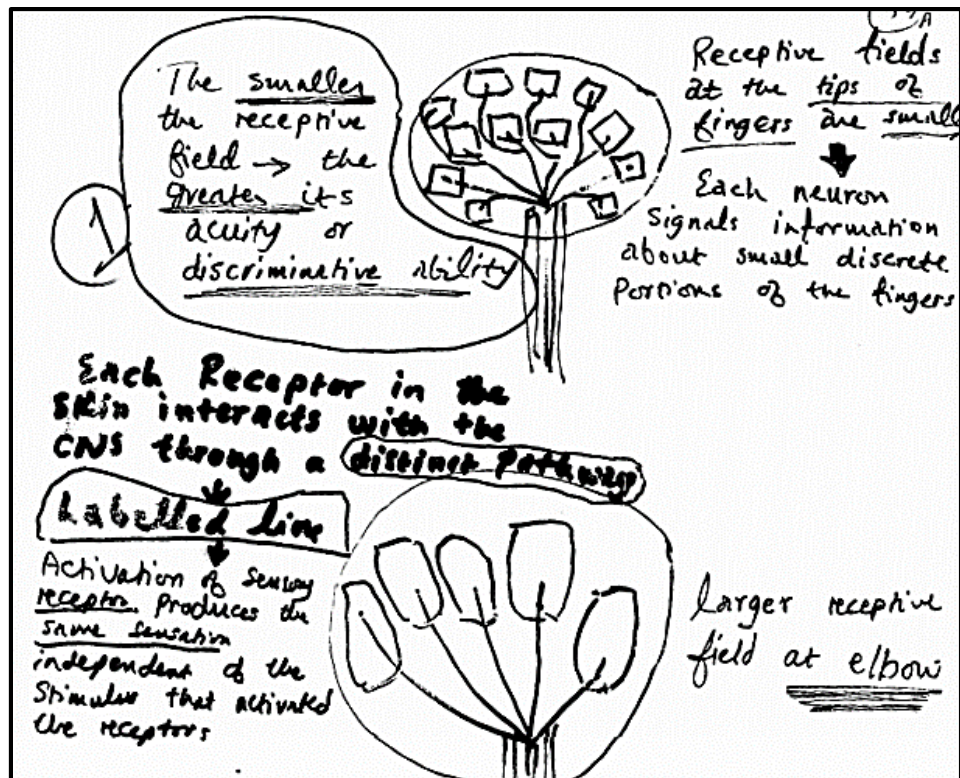 The smaller
the receptive
field → the
greater its
acuity or
discriminative ability
1
Receptive fields
at the tips of
fingers are small
Each neuron
signals information
about small discrete
portions of the fingers
Each Receptor in the
Skin interacts with the
CNS through a distinct pathway
Labelled line
Activation of sensory
receptor produces the
same sensation
independent of the
Stimulus that activated
the receptors
larger receptive
field at elbow